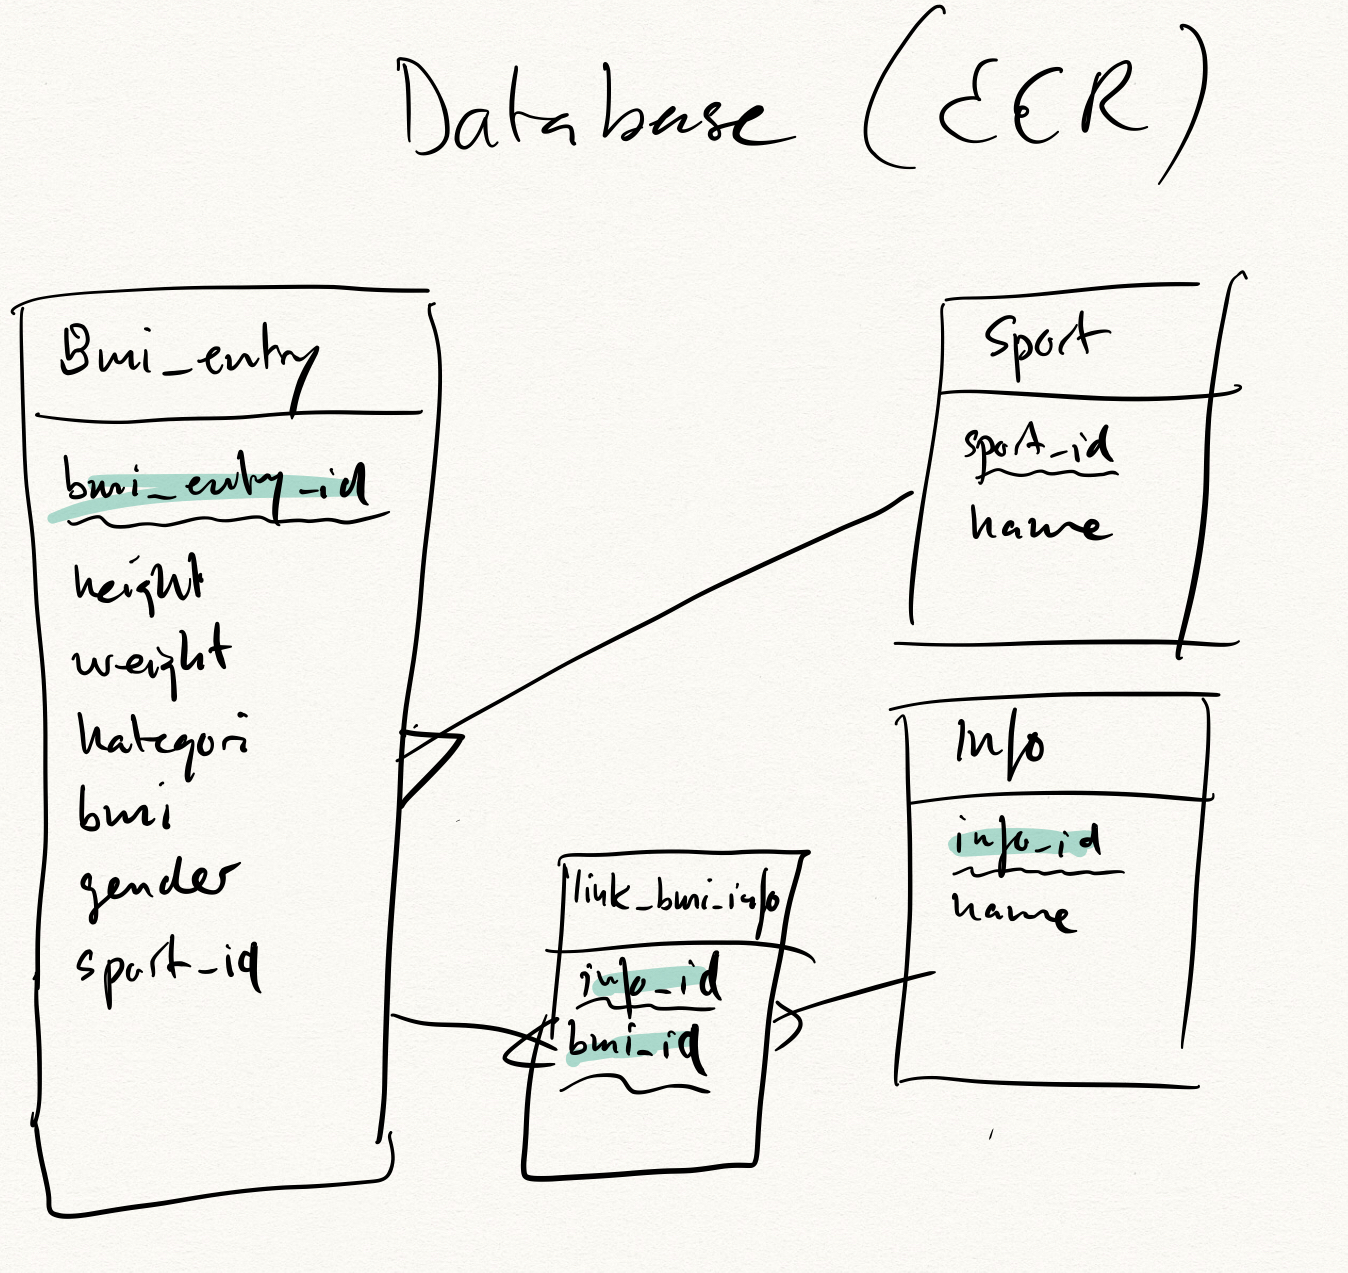 Database (EER)
Bmi_entry
bmi_entry_id
height
weight
kategori
bmi
gender
sport_id
Sport
sport_id
name
Info
info_id
name
link_bmi_info
info_id
bmi_id